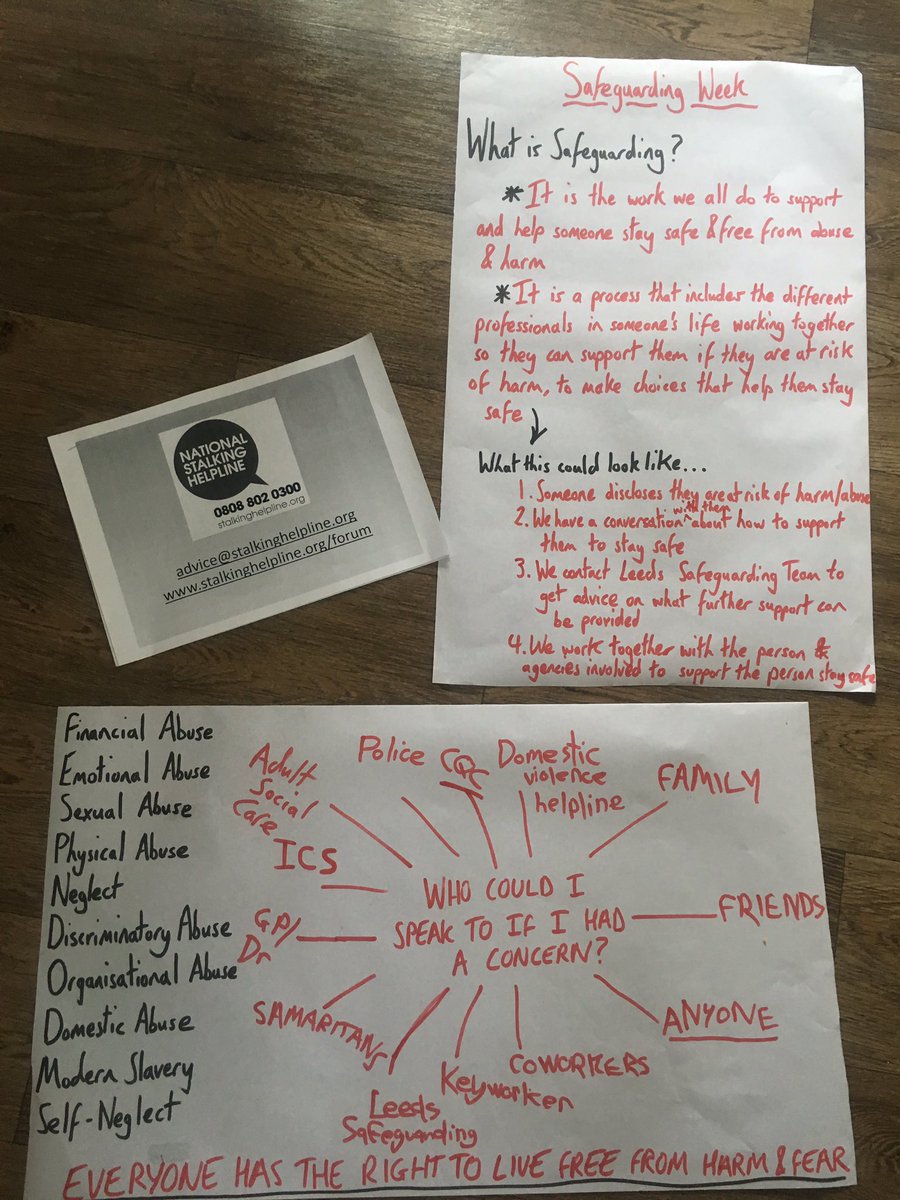 Safeguarding Week
What is Safeguarding?
* It is the work we all do to support
and help someone stay safe & free from abuse
& harm
* It is a process that includes the different
professionals in someone's life working together
so they can support them if they are at risk
of harm, to make choices that help them stay
safe
What this could look like...
1. Someone discloses they are at risk of harm/abuse
2. We have a conversation with them about how to support
them to stay safe
3. We contact Leeds Safeguarding Team to
get advice on what further support can
be provided
4. We work together with the person &
agencies involved to support the person stay safe
NATIONAL
STALKING
HELPLINE
0808 802 0300
stalkinghelpline.org
advice@stalkinghelpline.org
www.stalkinghelpline.org/forum
Financial Abuse
Emotional Abuse
Sexual Abuse
Physical Abuse
Neglect
Discriminatory Abuse
Organisational Abuse
Domestic Abuse
Modern Slavery
Self-Neglect
WHO COULD I
SPEAK TO IF I HAD
A CONCERN?
Adult
Social
Care
Police
CQC
Domestic
violence
helpline
FAMILY
FRIENDS
ANYONE
COWORKERS
Keyworker
Leeds
Safeguarding
SAMARITANS
GP/
Dr
ICS
EVERYONE HAS THE RIGHT TO LIVE FREE FROM HARM & FEAR